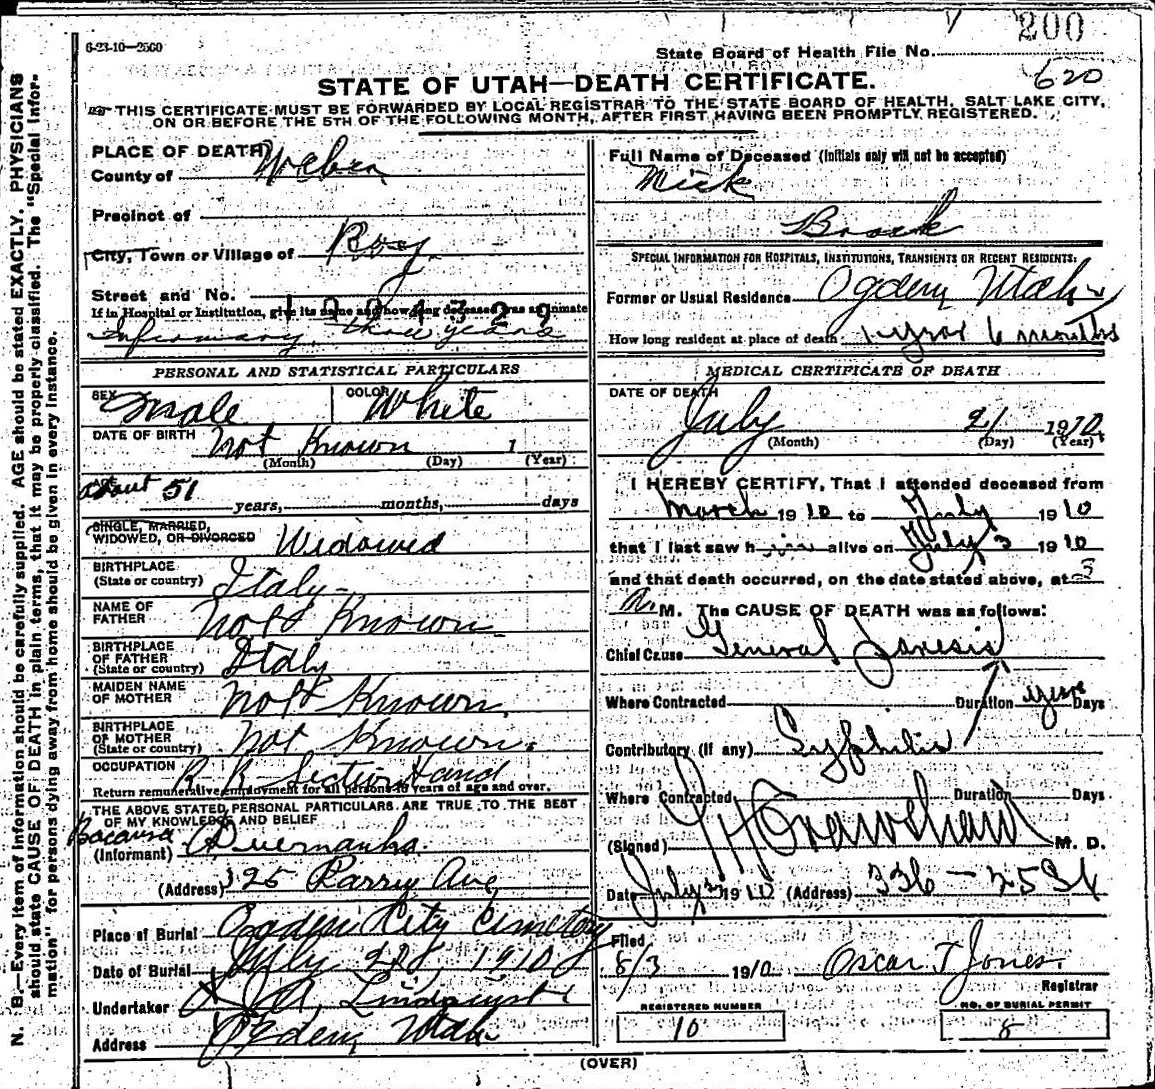 200
6-23-10—2500
State Board of Health File No.
620
STATE OF UTAH—DEATH CERTIFICATE.
THIS CERTIFICATE MUST BE FORWARDED BY LOCAL REGISTRAR TO THE STATE BOARD OF HEALTH, SALT LAKE CITY,
ON OR BEFORE THE 5TH OF THE FOLLOWING MONTH, AFTER FIRST HAVING BEEN PROMPTLY REGISTERED.
N. B.—Every item of Information should be carefully supplied. AGE should be stated EXACTLY. PHYSICIANS
should state CAUSE OF DEATH in plain terms, that it may be properly classified. The "Special Infor-
mation" for persons dying away from home should be given in every instance.
PLACE OF DEATH
County of Weber
Precinct of
City, Town or Village of Roy
Street and No.
If in Hospital or Institution, give its name and how long deceased was an inmate
Infirmary three years
PERSONAL AND STATISTICAL PARTICULARS
SEX Male COLOR White
DATE OF BIRTH Not Known 1
(Month) (Day) (Year)
about 51 years, months, days
SINGLE, MARRIED,
WIDOWED, OR DIVORCED Widowed
BIRTHPLACE
(State or country) Italy
NAME OF
FATHER Not Known
BIRTHPLACE
OF FATHER
(State or country) Italy
MAIDEN NAME
OF MOTHER Not Known
BIRTHPLACE
OF MOTHER
(State or country) Not Known
OCCUPATION R R Section Hand
Return remunerative employment for all persons 10 years of age and over.
THE ABOVE STATED PERSONAL PARTICULARS ARE TRUE TO THE BEST
OF MY KNOWLEDGE AND BELIEF
(Informant)
(Address) 125 Parry Ave
Place of Burial Ogden City Cemetery
Date of Burial July 1910
Undertaker A. Lindquist
Address Ogden, Utah
Full Name of Deceased (Initials only will not be accepted)
Mick
SPECIAL INFORMATION FOR HOSPITALS, INSTITUTIONS, TRANSIENTS OR RECENT RESIDENTS:
Former or Usual Residence Ogden, Utah
How long resident at place of death 1 year 6 months
MEDICAL CERTIFICATE OF DEATH
DATE OF DEATH
July 21 1910
(Month) (Day) (Year)
I HEREBY CERTIFY, That I attended deceased from
March 1910 to July 1910
that I last saw him alive on July 3 1910
and that death occurred, on the date stated above, at 3
a. M. The CAUSE OF DEATH was as follows:
Chief Cause General Paresis
Where Contracted Duration years Days
Contributory (if any) Syphilis
Where Contracted Duration Days
(Signed) Crawshaw M. D.
Date July 1910 (Address) 336 - 25 St
Filed
8/3 1910 Oscar T Jones
Registrar
REGISTERED NUMBER
10
NO. OF BURIAL PERMIT
8
(OVER)